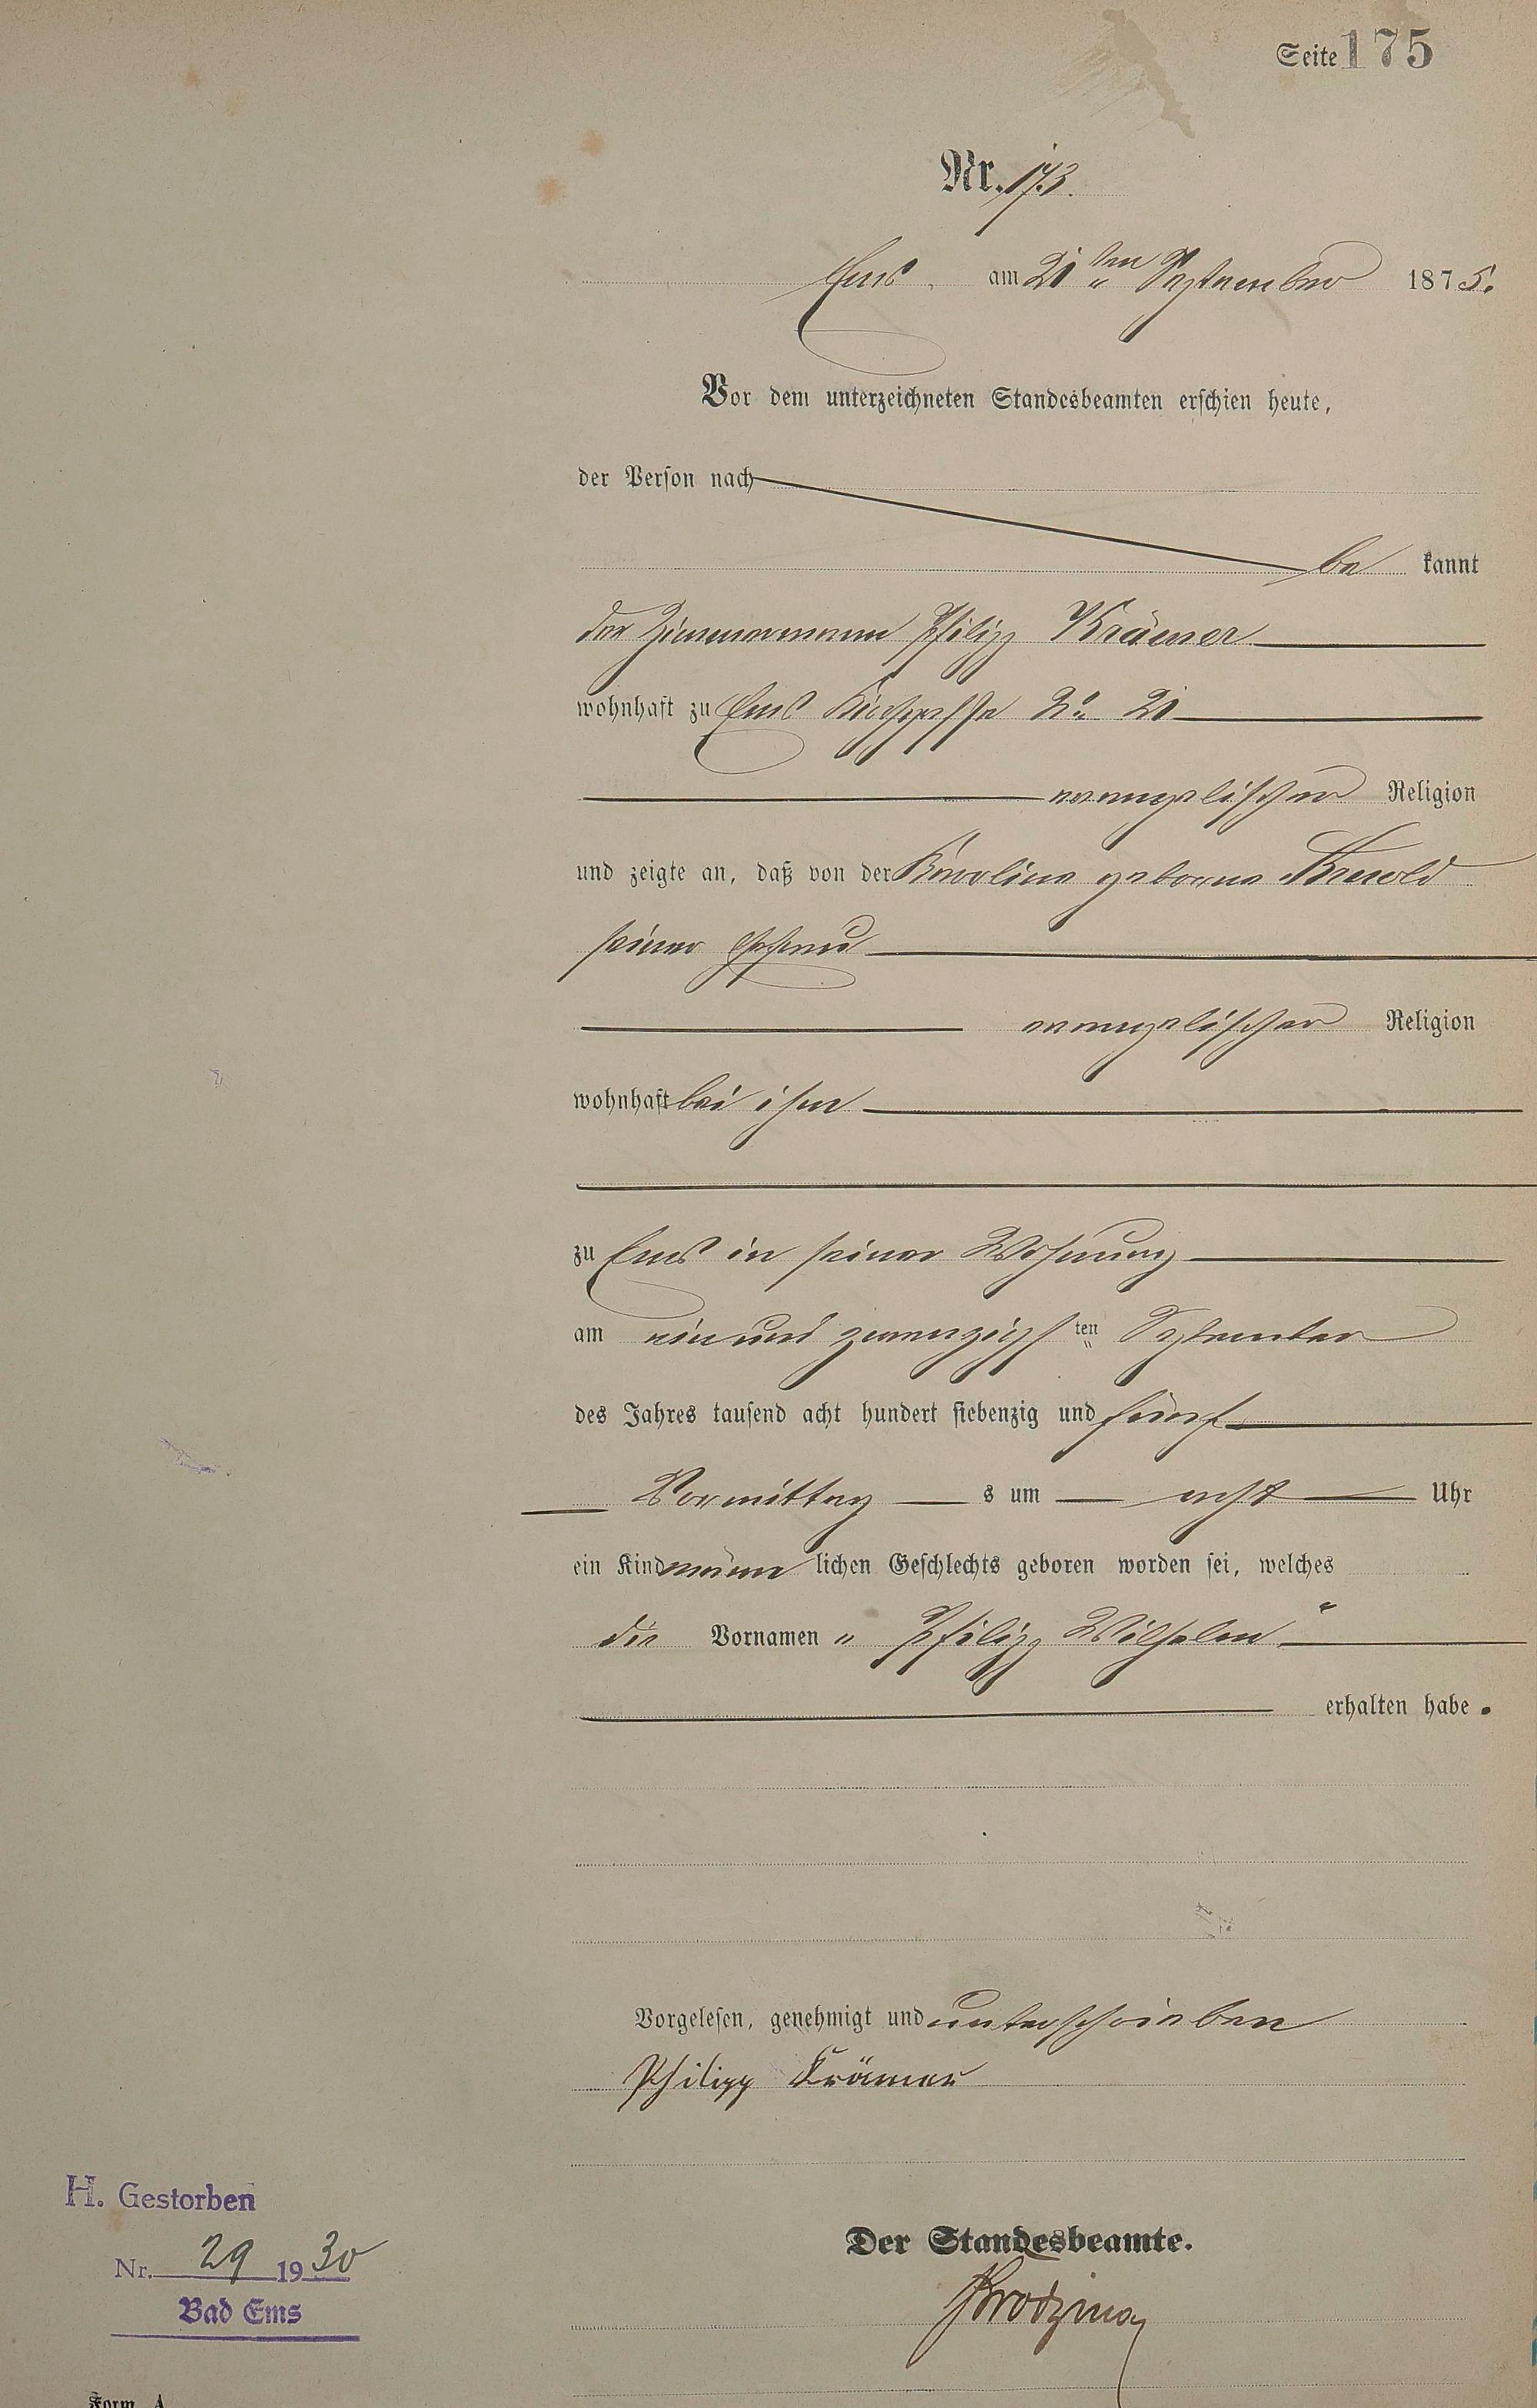 Seite 175
Nr. 173.
Ems, am 21ten September 1875.
Vor dem unterzeichneten Standesbeamten erschien heute,
der Person nach
be kannt
der Zimmermann Philipp Krämer
wohnhaft zu Ems Kirchgasse No 21
evangelischer Religion
und zeigte an, daß von der Karoline geborne
seiner Ehefrau
evangelischer Religion
wohnhaft bei ihm
zu Ems in seiner Wohnung
am ein und zwanzigsten September
des Jahres tausend acht hundert siebenzig und fünf
Vormittag s um acht Uhr
ein Kind männ lichen Geschlechts geboren worden sei, welches
die Vornamen „ Philipp Wilhelm "
erhalten habe.
Vorgelesen, genehmigt und unterschrieben
Philipp Krämer
H. Gestorben
Nr. 29 1930
Bad Ems
Der Standesbeamte.
Form. A